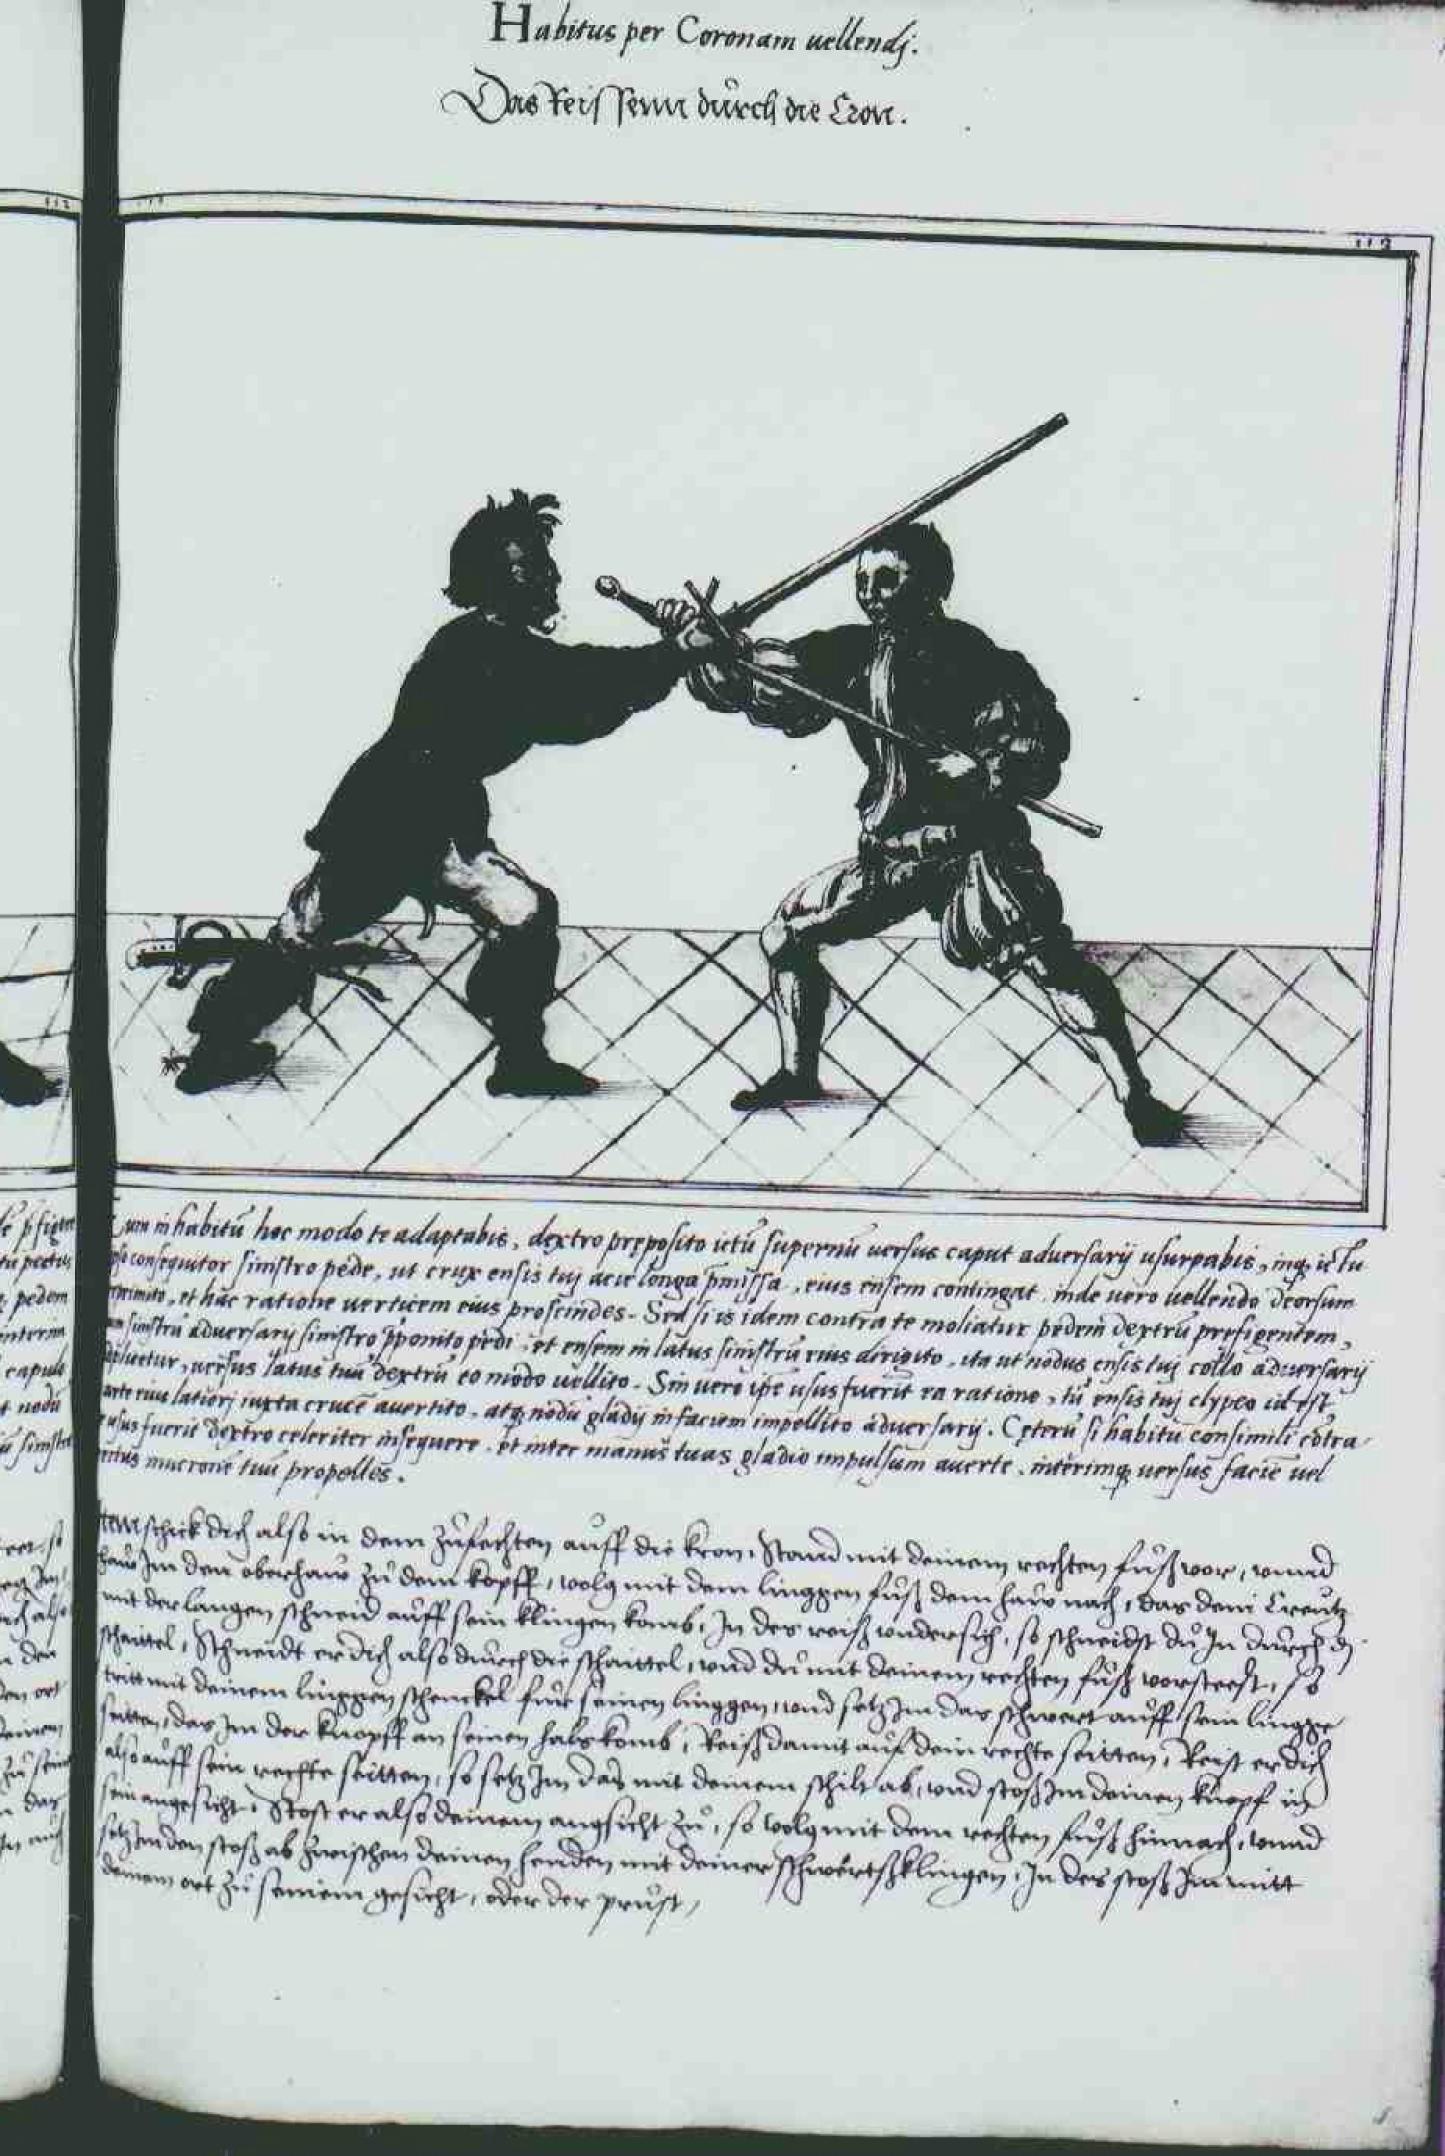 Habitus per Coronam uellendj.
Das Reissenn dúrch die Cron.
113
habitũ hoc modo te adaptabis, dextro pręposito ictũ supernũ uersus caput aduersarij usurpabis, inq, ictu
consequitor sinistro pede, ut crux ensis tuj acie longa p̃missa, eius ensem contingat, inde uero uellendo deorsum
et hac ratione uerticem eius proscindes. Sed si is idem contra te moliatur pedem dextrũ prefigentem,
sinistrũ aduersarij sinistro p̃ponito pedi, et ensem in latus sinistrũ eius dirigito, ita ut nodus ensis tuj collo aduersarij
uersus latus tuũ dextrũ eo modo uellito. Sin uero ipe usus fuerit ea ratione, tũ ensis tuj clypeo id est
parte eius latiori iuxta crucẽ auertito, atq, nodũ gladij in faciem impellito aduersarij. Cęterũ si habitũ consimili cõtra-
usus fuerit dextro celeriter insequere, et inter manus tuas gladio impulsum auerte, interimq, uersus faciẽ uel
mucrone tuũ propelles.
Item schick dich also in dem zúfechten auff die kron, Stand mit deinem rechten fúß vor, vnnd
haw Jm den oberhaw zú dem kopff, volg mit dem linggen fúß dem haw nach, das dein Creutz
mit der langen schneid aúff sein klingen komb, In des reiß vndersich, so schneidst dú Jn dúrch d
schaittel, Schneidt er dich also dúrch die schaittel, vnd dú mit deinem rechten fúß vorsteest, so
tritt mit deinem linggen schenckel fúr seinen linggen, vnd setz Jm das schwert aúff sein lingge
seitten, das Jm der knopff an seinen hals komb, Reiß damit aúf dein rechte seitten, Reist er dich
also aúff sein rechte seitten, so setz Jm das mit deinem schilt ab, vnd stoß Jm deinen knopf in
sein angesicht, Stost er also deinem angsicht zú, so volg mit dem rechten fúß hinnach, vnnd
setz Jm den stoß ab zwischen deinen henden mit deiner schwertsklingen, In des stoß Jm mitt
deinem ort zú seinem gesicht, oder der prúst,